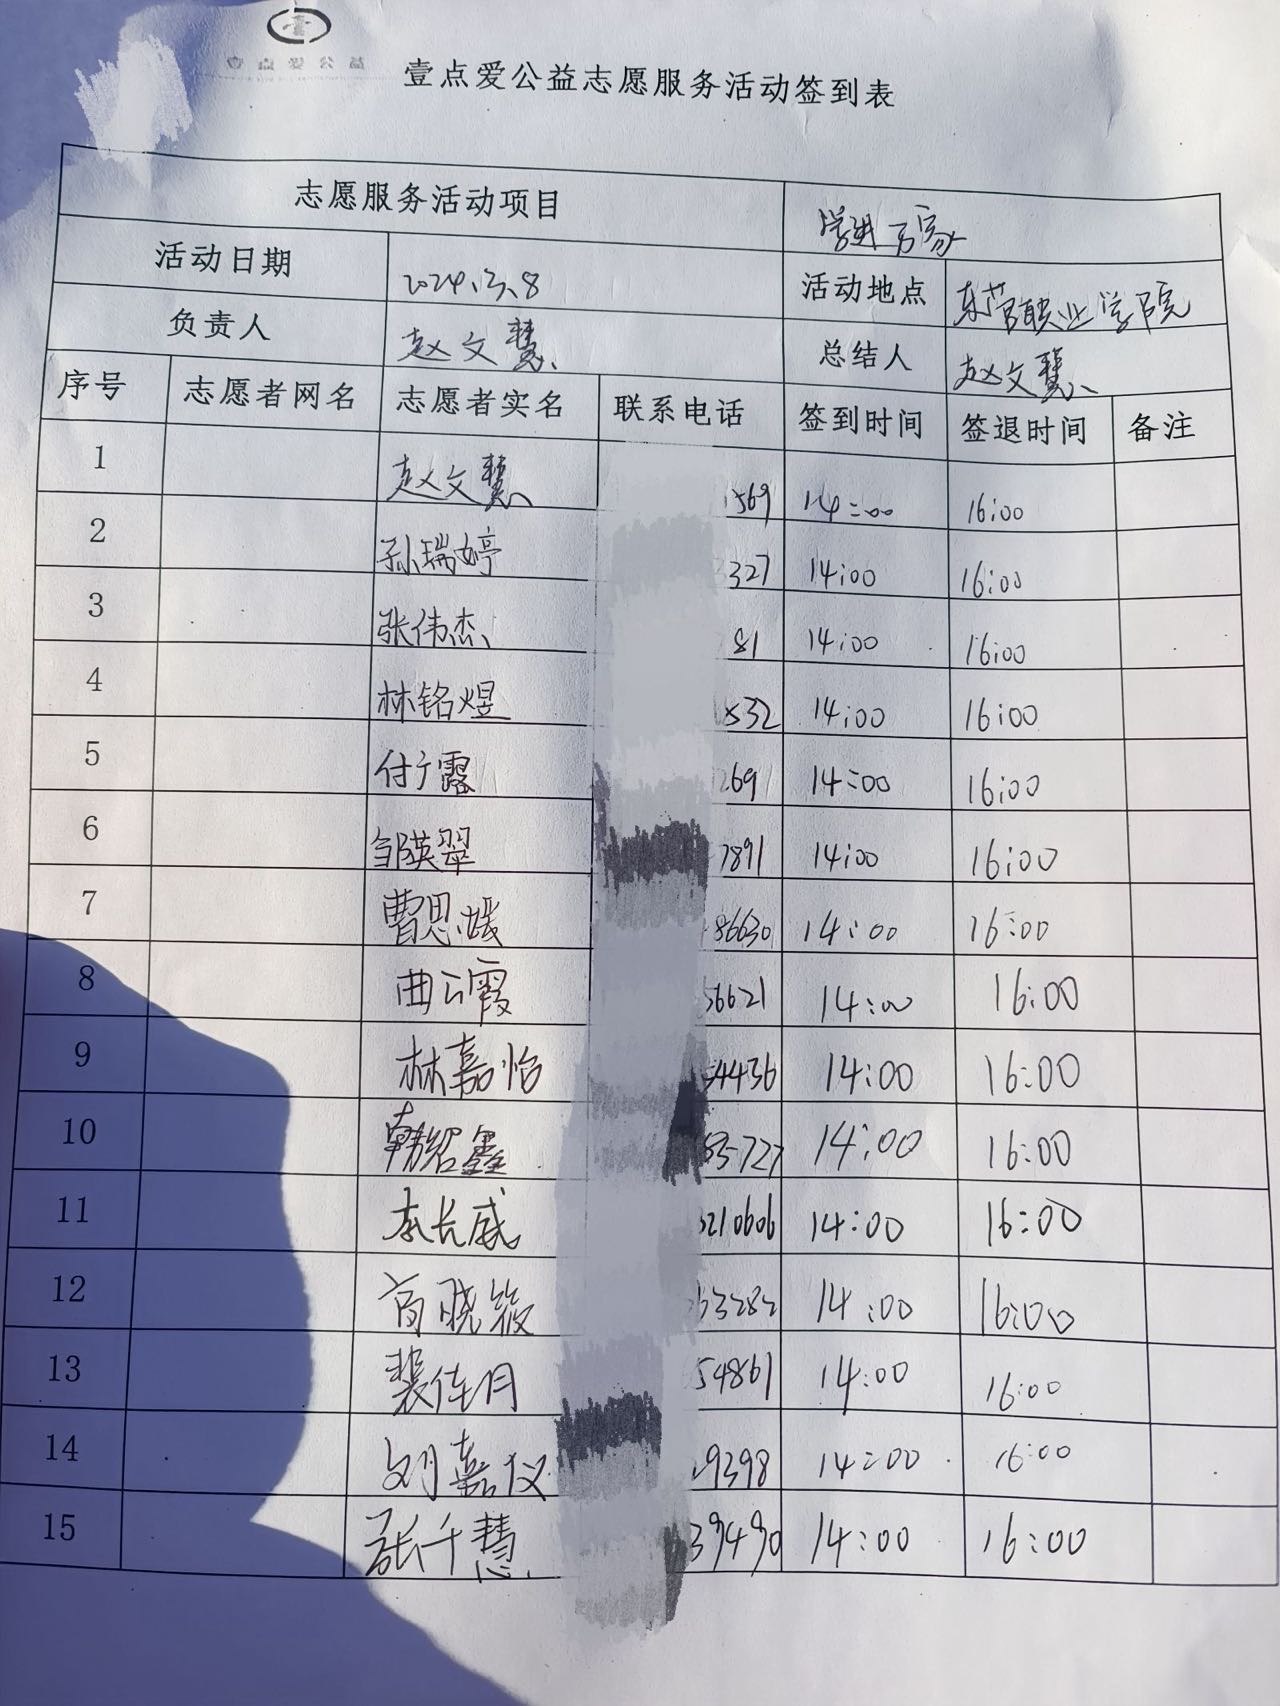 壹点爱公益
壹点爱公益志愿服务活动签到表
志愿服务活动项目 学进万家
活动日期 2024.3.8 活动地点 东营职业学院
负责人 赵文慧 总结人 赵文慧
序号 志愿者网名 志愿者实名 联系电话 签到时间 签退时间 备注
1 赵文慧 1569 14:00 16:00
2 孙瑞婷 3327 14:00 16:00
3 张伟杰 81 14:00 16:00
4 林铭煜 8532 14:00 16:00
5 付广露 2691 14:00 16:00
6 邹英翠 7891 14:00 16:00
7 曹思媛 86630 14:00 16:00
8 曲云霞 56621 14:00 16:00
9 林嘉怡 54436 14:00 16:00
10 韩绍鑫 727 14:00 16:00
11 李长威 3210606 14:00 16:00
12 高晓筱 63282 14:00 16:00
13 裴佳月 54861 14:00 16:00
14 刘嘉仪 9398 14:00 16:00
15 张千慧 39490 14:00 16:00